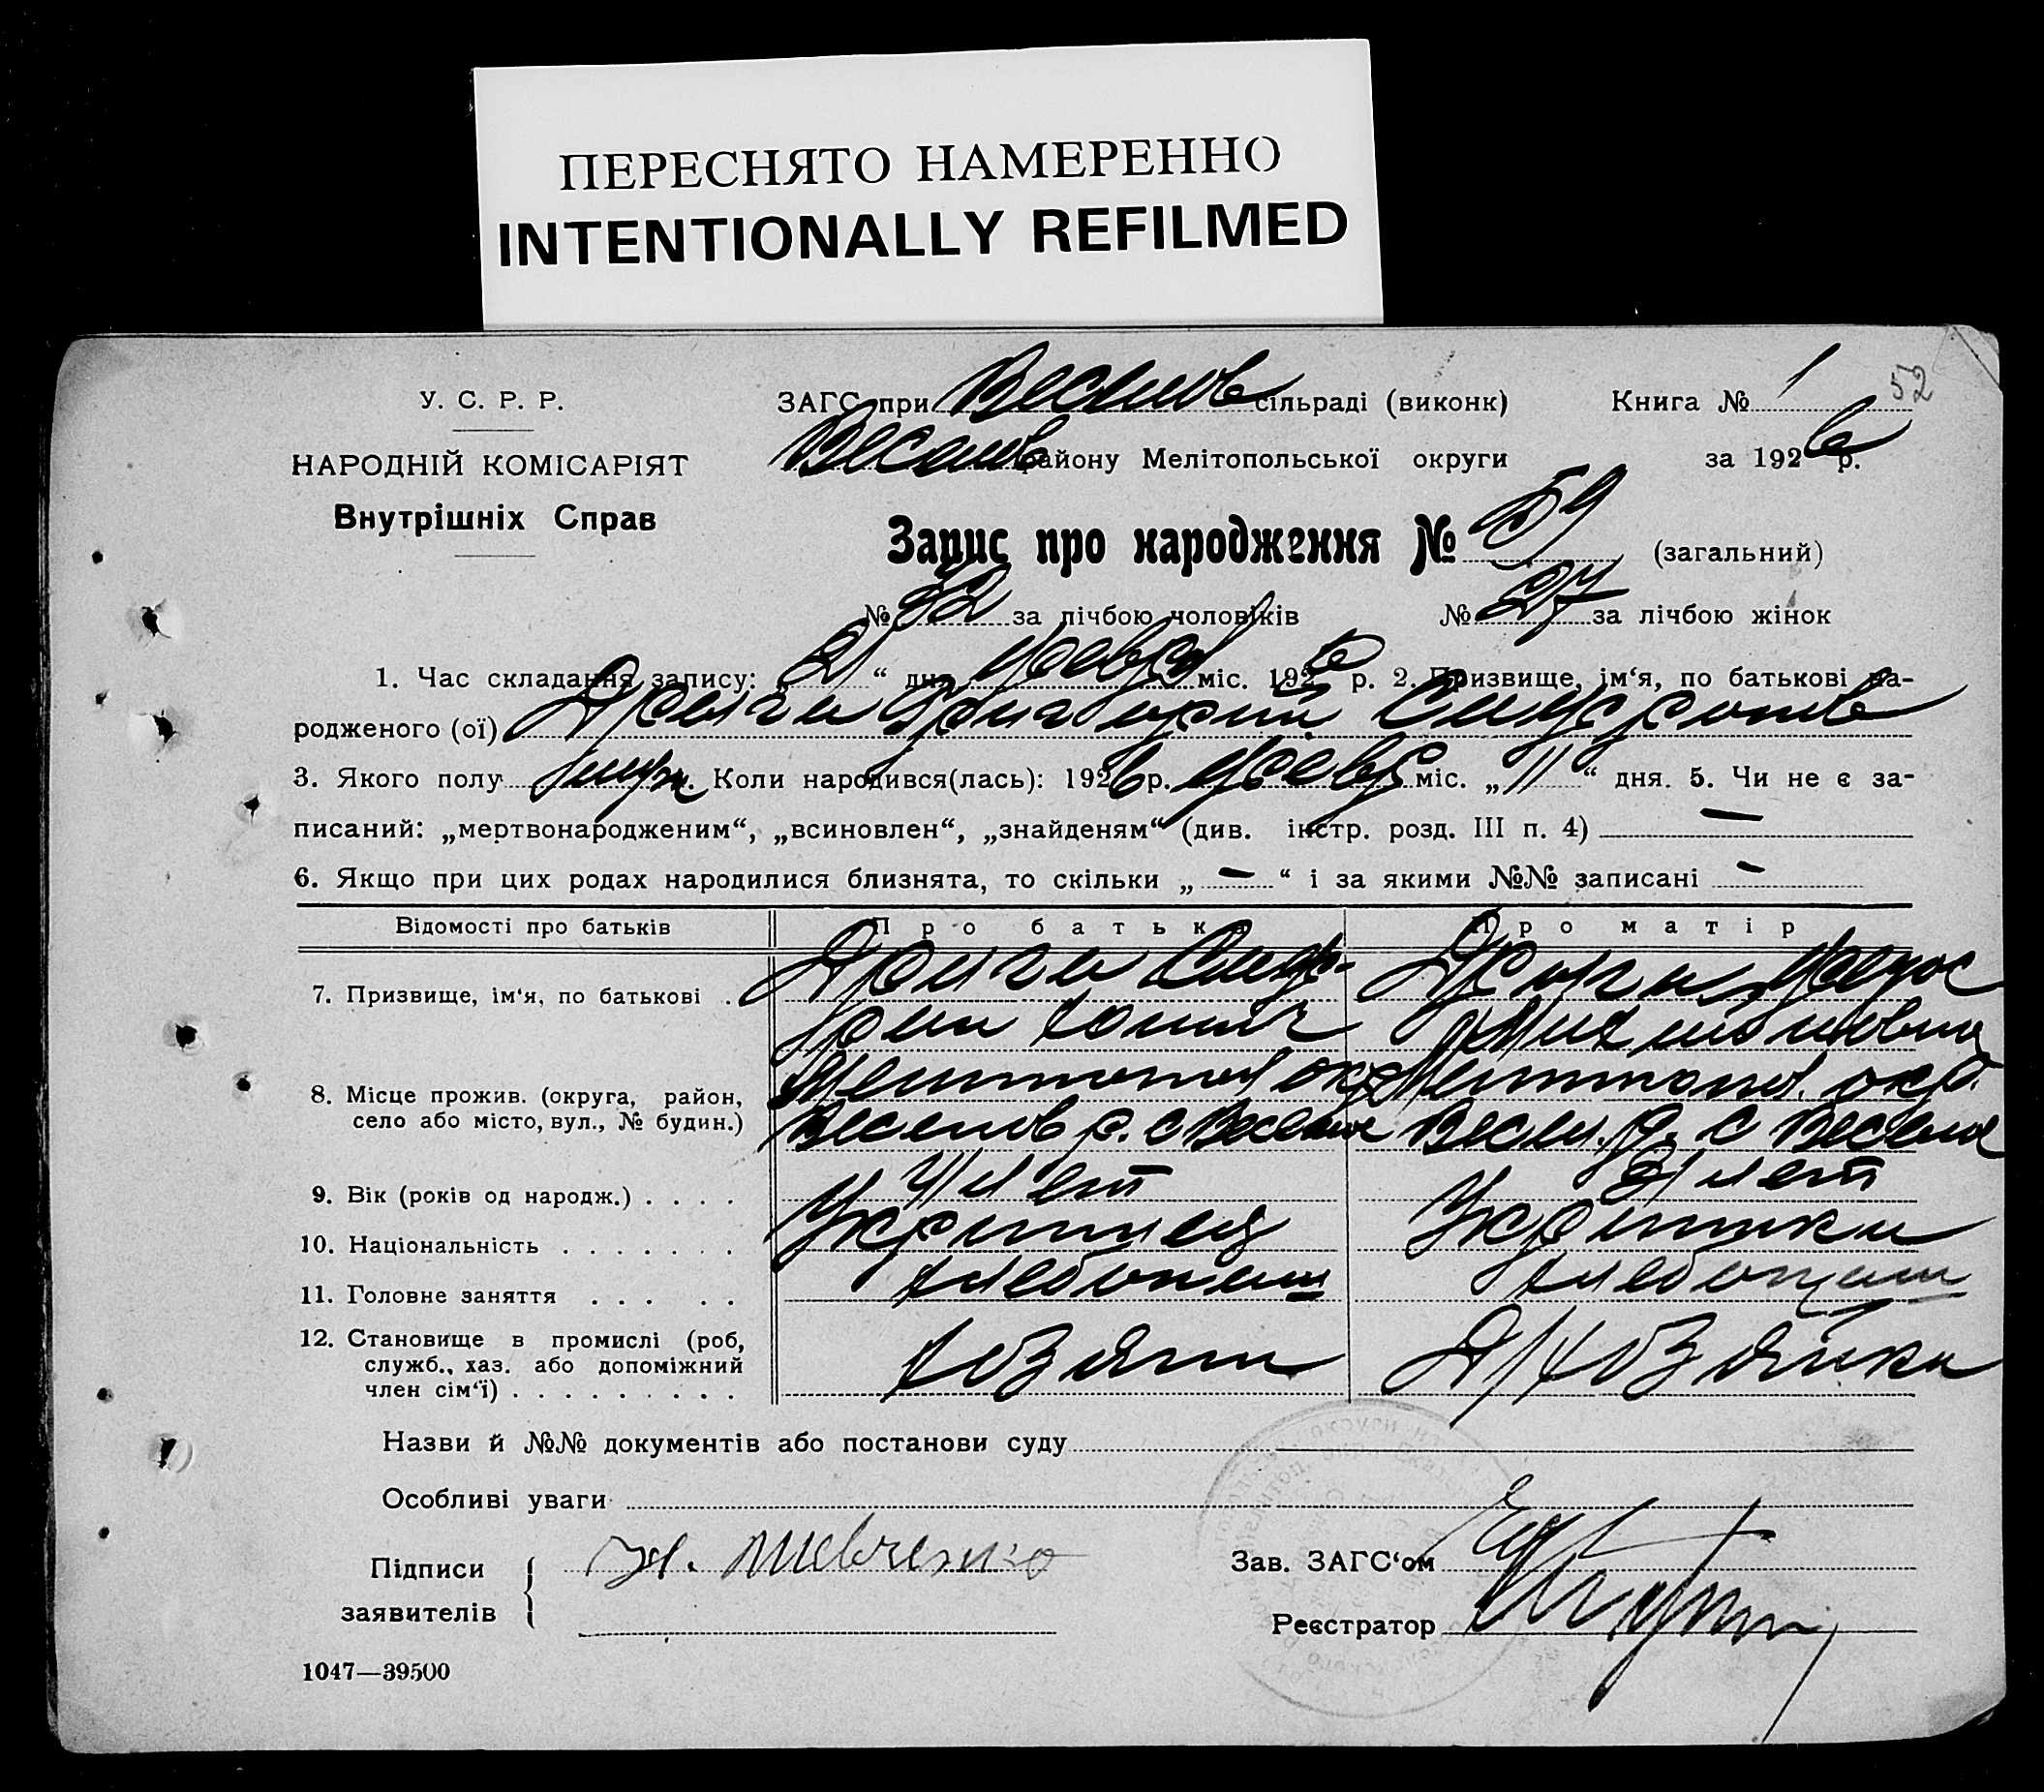 ПЕРЕСНЯТО НАМЕРЕННО
INTENTIONALLY REFILMED
52
У. С. Р. Р.
НАРОДНІЙ КОМІСАРІЯТ
Внутрішніх Справ
ЗАГС при Веселов сільраді (виконк)
Книга № 1
Веселов району Мелітопольської округи
за 1926 р.
Запис про народження № 59 (загальний)
№ 32 за лічбою чоловіків № 27 за лічбою жінок
1. Час складання запису: „21“ дня февр міс. 1926 р. 2. Призвище, ім‘я, по батькові на-
родженого (ої) Дряга Григорий
3. Якого полу муж. Коли народився(лась): 1926 р. февр міс. „11“ дня. 5. Чи не є за-
писаний: „мертвонародженим“, „всиновлен“, „знайденям“ (див. інстр. розд. III п. 4) —
6. Якщо при цих родах народилися близнята, то скільки „ — “ і за якими №№ записані —
Відомості про батьків Про батька Про матір
7. Призвище, ім‘я, по батькові . Дряга Сиф- Дряга
рон Михайловна
8. Місце прожив. (округа, район, Мелитопол окр Мелитопол. окр.
село або місто, вул., № будин.) Веселов р. с Веселое Весел. р. с Веселое
9. Вік (років од народж.) . . . . лет лет
10. Національність . . . . . . . Украинец Украинка
11. Головне заняття . . . . . хлебопаш хлебопаш
12. Становище в промислі (роб,
служб., хаз. або допоміжний хозяин Д/хозяйка
член сім‘ї) . . . . . . . . .
Назви й №№ документів або постанови суду
Особливі уваги
Підписи Шевченко
заявителів
Зав. ЗАГС‘ом
Реєстратор
1047—39500